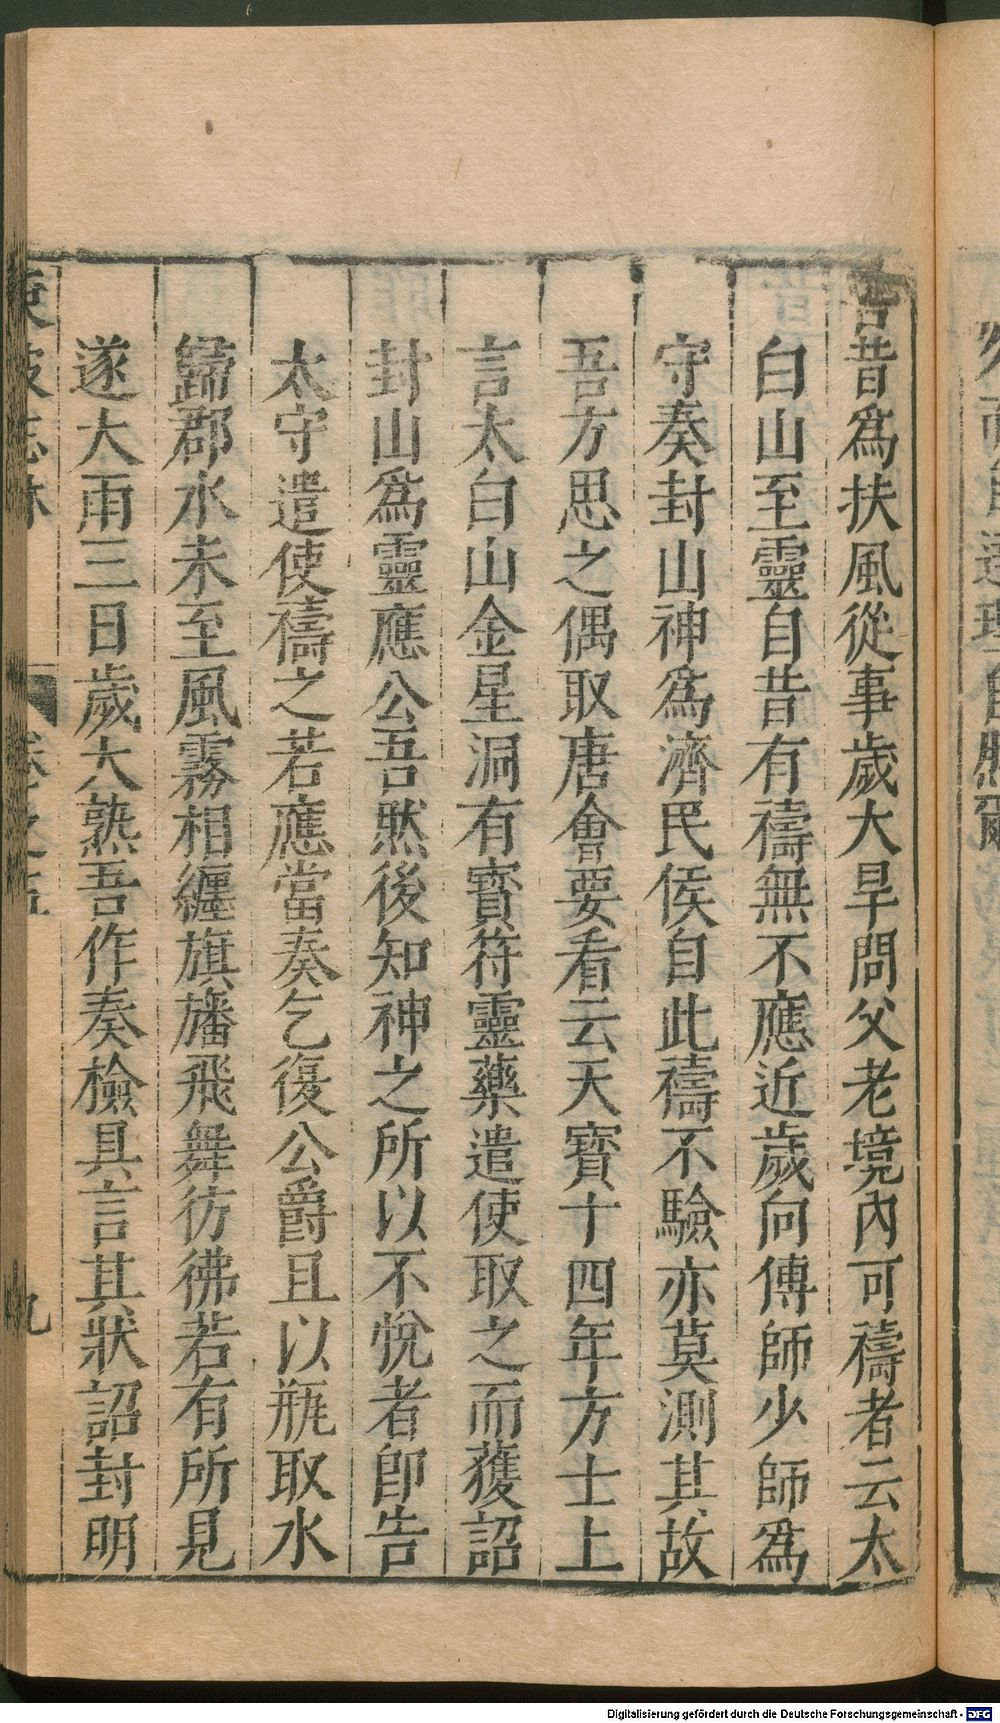 吾昔爲扶風從事歲大旱問父老境內可禱者云太
白山至靈自昔有禱無不應近歲向傅師少師爲
守奏封山神爲濟民侯自此禱不驗亦莫測其故
吾方思之偶取唐會要看云天寶十四年方士上
言太白山金星洞有寶符靈藥遣使取之而獲詔
封山爲靈應公吾然後知神之所以不悅者卽告
太守遣使禱之若應當奏乞復公爵且以瓶取水
歸郡水未至風霧相纏旗旛飛舞彷彿若有所見
遂大雨三日歲大熟吾作奏檢具言其狀詔封明
東坡志林
九
Digitalisierung gefördert durch die Deutsche Forschungsgemeinschaft - DFG